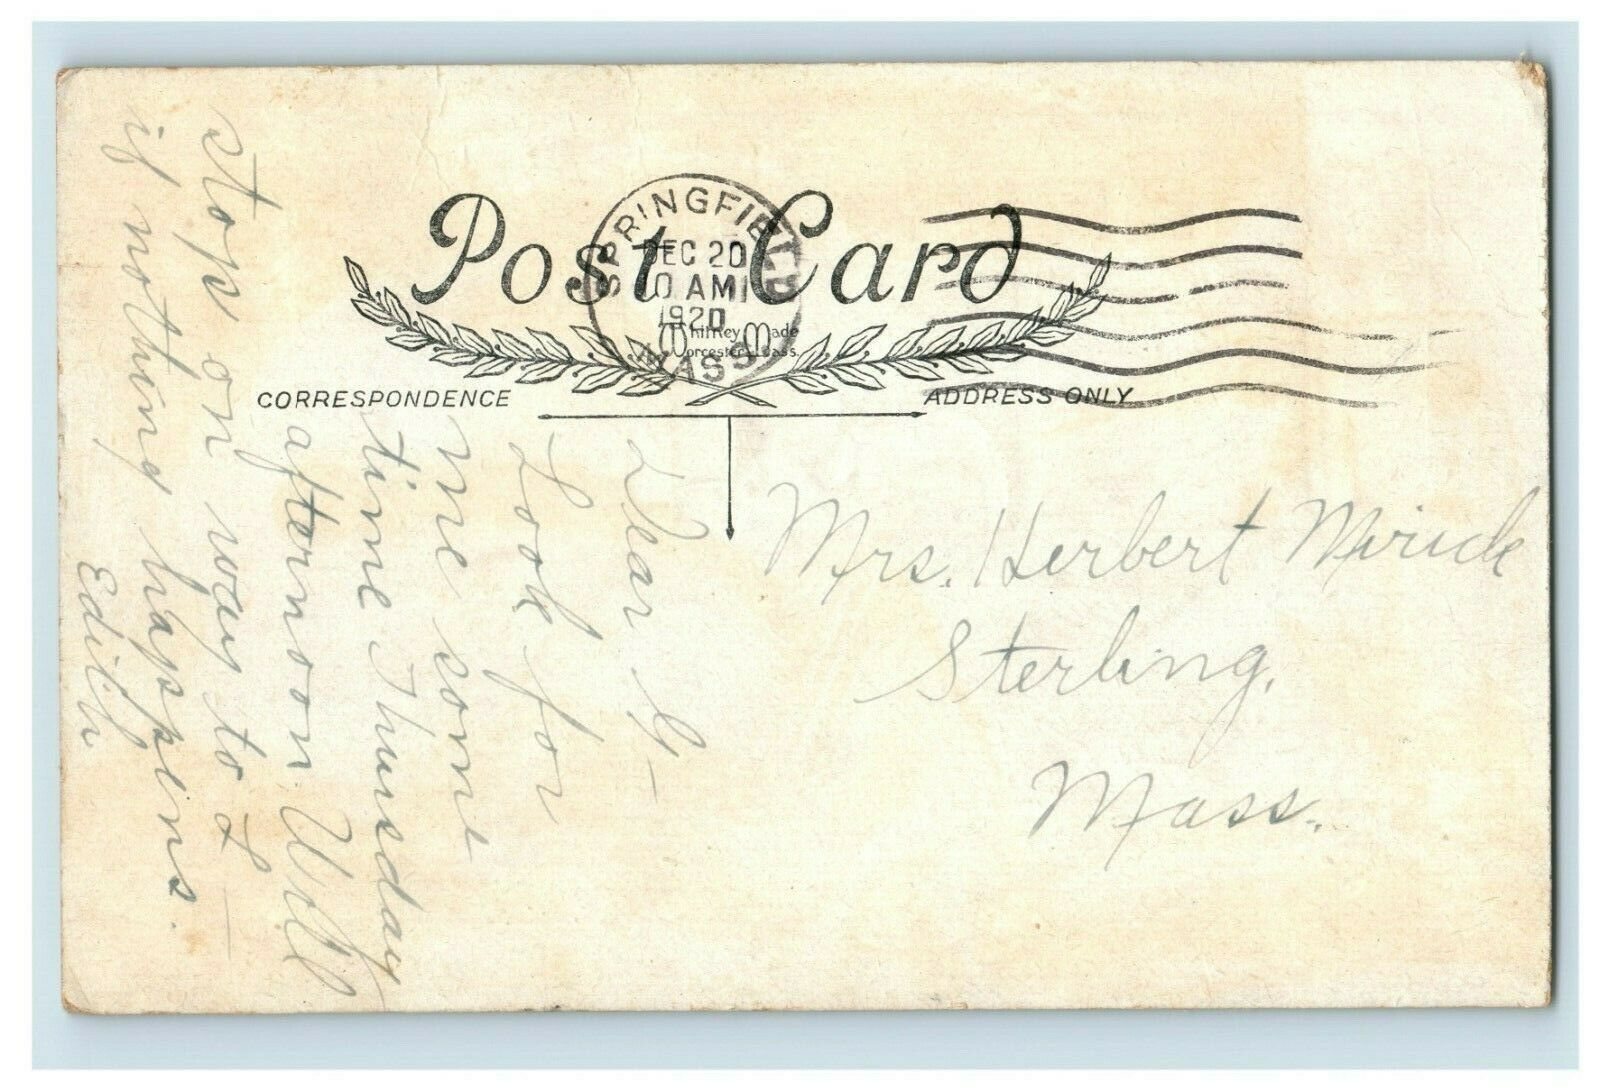 Post Card
SPRINGFIELD
DEC 20
10 AM
1920
MASS
Whitney Made
Worcester Mass.
CORRESPONDENCE
ADDRESS ONLY
Dear
Look for
me some
time Thursday
afternoon. Will
stop on way to L –
if nothing happens.
Edith
Mrs. Herbert Mirick
Sterling,
Mass.